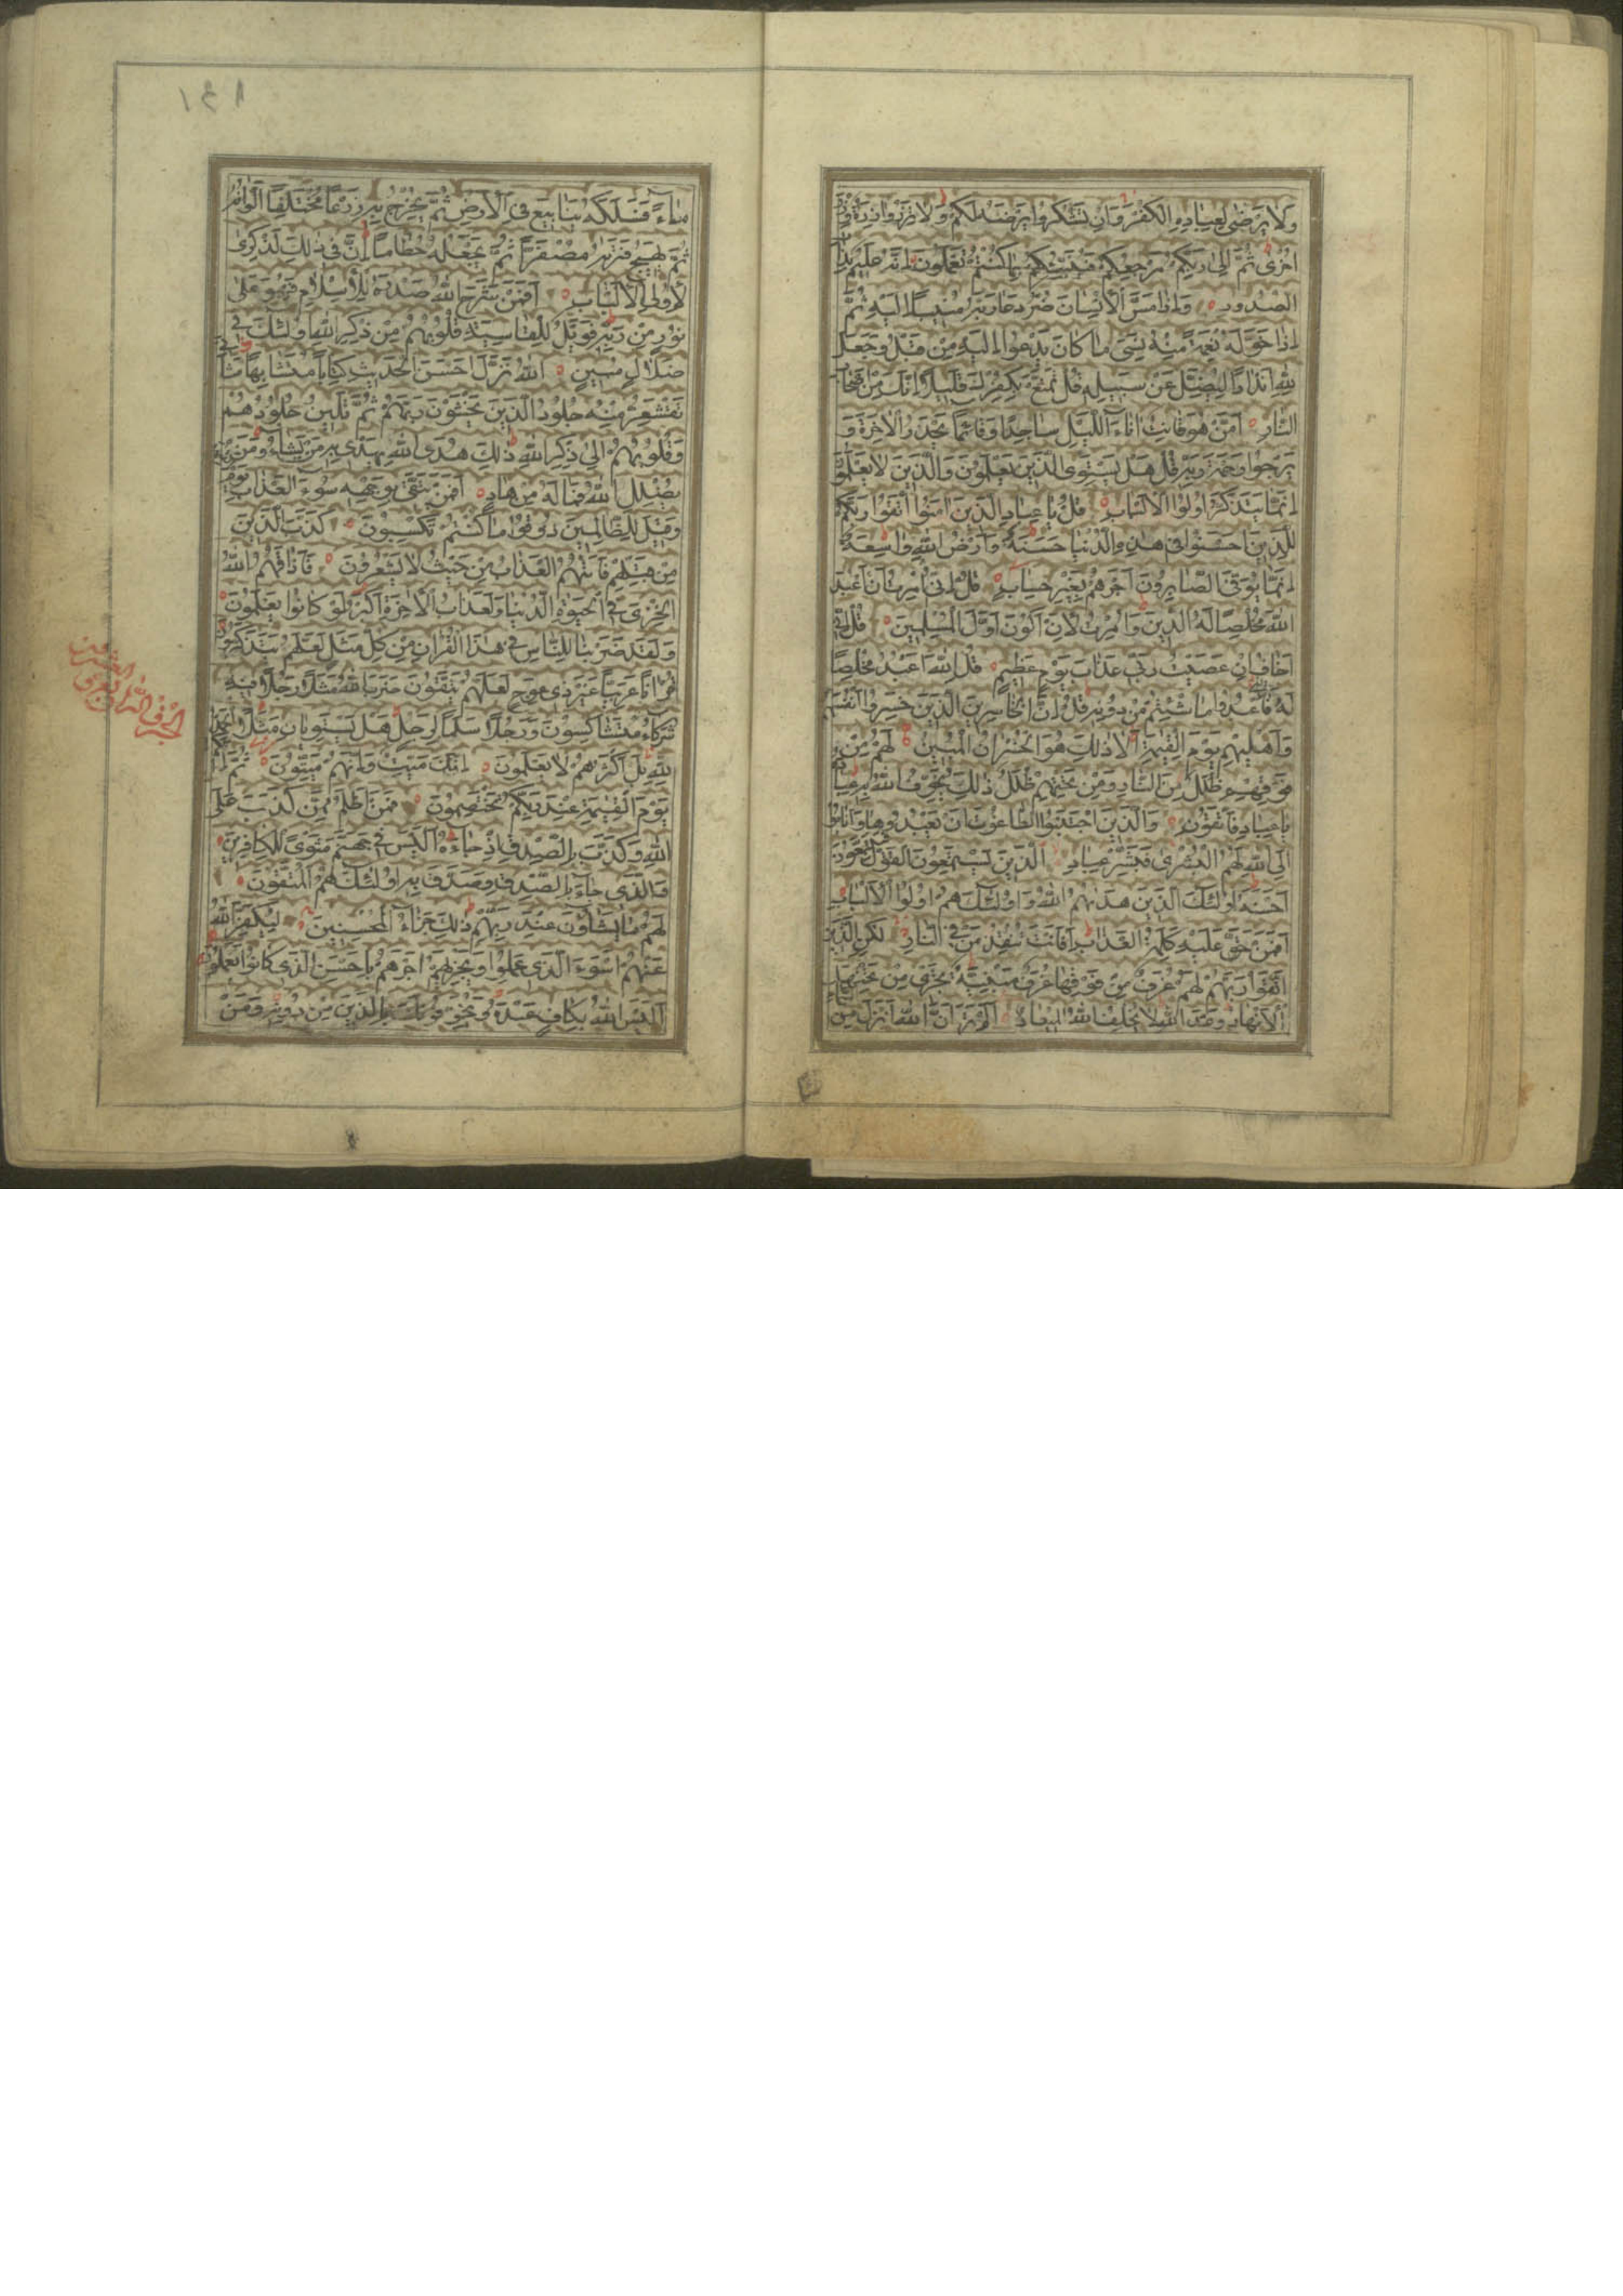 وَلَا يَرْضٰى لِعِبَادِهِ الْكُفْرَ وَاِنْ تَشْكُرُوا يَرْضَهُ لَكُمْ وَلَا تَزِرُ وَازِرَةٌ وِزْرَ
اُخْرٰى ثُمَّ اِلٰى رَبِّكُمْ مَرْجِعُكُمْ فَيُنَبِّئُكُمْ بِمَا كُنْتُمْ تَعْمَلُونَ اِنَّهُ عَلِيمٌ بِذَاتِ
الصُّدُورِ وَاِذَا مَسَّ الْاِنْسَانَ ضُرٌّ دَعَا رَبَّهُ مُنِيبًا اِلَيْهِ ثُمَّ
اِذَا خَوَّلَهُ نِعْمَةً مِنْهُ نَسِيَ مَا كَانَ يَدْعُوا اِلَيْهِ مِنْ قَبْلُ وَجَعَلَ
لِلّٰهِ اَنْدَادًا لِيُضِلَّ عَنْ سَبِيلِهِ قُلْ تَمَتَّعْ بِكُفْرِكَ قَلِيلًا اِنَّكَ مِنْ اَصْحَابِ
النَّارِ اَمَّنْ هُوَ قَانِتٌ اٰنَاءَ اللَّيْلِ سَاجِدًا وَقَائِمًا يَحْذَرُ الْاٰخِرَةَ وَ
يَرْجُوا رَحْمَةَ رَبِّهِ قُلْ هَلْ يَسْتَوِي الَّذِينَ يَعْلَمُونَ وَالَّذِينَ لَا يَعْلَمُونَ
اِنَّمَا يَتَذَكَّرُ اُولُوا الْاَلْبَابِ قُلْ يَا عِبَادِ الَّذِينَ اٰمَنُوا اتَّقُوا رَبَّكُمْ
لِلَّذِينَ اَحْسَنُوا فِي هٰذِهِ الدُّنْيَا حَسَنَةٌ وَاَرْضُ اللّٰهِ وَاسِعَةٌ
اِنَّمَا يُوَفَّى الصَّابِرُونَ اَجْرَهُمْ بِغَيْرِ حِسَابٍ قُلْ اِنِّي اُمِرْتُ اَنْ اَعْبُدَ
اللّٰهَ مُخْلِصًا لَهُ الدِّينَ وَاُمِرْتُ لِاَنْ اَكُونَ اَوَّلَ الْمُسْلِمِينَ قُلْ اِنِّي
اَخَافُ اِنْ عَصَيْتُ رَبِّي عَذَابَ يَوْمٍ عَظِيمٍ قُلِ اللّٰهَ اَعْبُدُ مُخْلِصًا
لَهُ دِينِي فَاعْبُدُوا مَا شِئْتُمْ مِنْ دُونِهِ قُلْ اِنَّ الْخَاسِرِينَ الَّذِينَ خَسِرُوا اَنْفُسَهُمْ
وَاَهْلِيهِمْ يَوْمَ الْقِيٰمَةِ اَلَا ذٰلِكَ هُوَ الْخُسْرَانُ الْمُبِينُ لَهُمْ مِنْ
فَوْقِهِمْ ظُلَلٌ مِنَ النَّارِ وَمِنْ تَحْتِهِمْ ظُلَلٌ ذٰلِكَ يُخَوِّفُ اللّٰهُ بِهِ عِبَادَهُ
يَا عِبَادِ فَاتَّقُونِ وَالَّذِينَ اجْتَنَبُوا الطَّاغُوتَ اَنْ يَعْبُدُوهَا وَاَنَابُوا
اِلَى اللّٰهِ لَهُمُ الْبُشْرٰى فَبَشِّرْ عِبَادِ الَّذِينَ يَسْتَمِعُونَ الْقَوْلَ فَيَتَّبِعُونَ
اَحْسَنَهُ اُولٰئِكَ الَّذِينَ هَدٰيهُمُ اللّٰهُ وَاُولٰئِكَ هُمْ اُولُوا الْاَلْبَابِ
اَفَمَنْ حَقَّ عَلَيْهِ كَلِمَةُ الْعَذَابِ اَفَاَنْتَ تُنْقِذُ مَنْ فِي النَّارِ لٰكِنِ الَّذِينَ
اتَّقَوْا رَبَّهُمْ لَهُمْ غُرَفٌ مِنْ فَوْقِهَا غُرَفٌ مَبْنِيَّةٌ تَجْرِي مِنْ تَحْتِهَا
الْاَنْهَارُ وَعْدَ اللّٰهِ لَا يُخْلِفُ اللّٰهُ الْمِيعَادَ اَلَمْ تَرَ اَنَّ اللّٰهَ اَنْزَلَ مِنَ السَّمَاءِ
مَاءً فَسَلَكَهُ يَنَابِيعَ فِي الْاَرْضِ ثُمَّ يُخْرِجُ بِهِ زَرْعًا مُخْتَلِفًا اَلْوَانُهُ
ثُمَّ يَهِيجُ فَتَرٰيهُ مُصْفَرًّا ثُمَّ يَجْعَلُهُ حُطَامًا اِنَّ فِي ذٰلِكَ لَذِكْرٰى
لِاُولِي الْاَلْبَابِ اَفَمَنْ شَرَحَ اللّٰهُ صَدْرَهُ لِلْاِسْلَامِ فَهُوَ عَلٰى
نُورٍ مِنْ رَبِّهِ فَوَيْلٌ لِلْقَاسِيَةِ قُلُوبُهُمْ مِنْ ذِكْرِ اللّٰهِ اُولٰئِكَ فِي
ضَلَالٍ مُبِينٍ اَللّٰهُ نَزَّلَ اَحْسَنَ الْحَدِيثِ كِتَابًا مُتَشَابِهًا مَثَانِيَ
تَقْشَعِرُّ مِنْهُ جُلُودُ الَّذِينَ يَخْشَوْنَ رَبَّهُمْ ثُمَّ تَلِينُ جُلُودُهُمْ
وَقُلُوبُهُمْ اِلٰى ذِكْرِ اللّٰهِ ذٰلِكَ هُدَى اللّٰهِ يَهْدِي بِهِ مَنْ يَشَاءُ وَمَنْ
يُضْلِلِ اللّٰهُ فَمَا لَهُ مِنْ هَادٍ اَفَمَنْ يَتَّقِي بِوَجْهِهِ سُوءَ الْعَذَابِ يَوْمَ
وَقِيلَ لِلظَّالِمِينَ ذُوقُوا مَا كُنْتُمْ تَكْسِبُونَ كَذَّبَ الَّذِينَ
مِنْ قَبْلِهِمْ فَاَتٰيهُمُ الْعَذَابُ مِنْ حَيْثُ لَا يَشْعُرُونَ فَاَذَاقَهُمُ اللّٰهُ
الْخِزْيَ فِي الْحَيٰوةِ الدُّنْيَا وَلَعَذَابُ الْاٰخِرَةِ اَكْبَرُ لَوْ كَانُوا يَعْلَمُونَ
وَلَقَدْ ضَرَبْنَا لِلنَّاسِ فِي هٰذَا الْقُرْاٰنِ مِنْ كُلِّ مَثَلٍ لَعَلَّهُمْ يَتَذَكَّرُونَ
قُرْاٰنًا عَرَبِيًّا غَيْرَ ذِي عِوَجٍ لَعَلَّهُمْ يَتَّقُونَ ضَرَبَ اللّٰهُ مَثَلًا رَجُلًا فِيهِ
شُرَكَاءُ مُتَشَاكِسُونَ وَرَجُلًا سَلَمًا لِرَجُلٍ هَلْ يَسْتَوِيَانِ مَثَلًا اَلْحَمْدُ
لِلّٰهِ بَلْ اَكْثَرُهُمْ لَا يَعْلَمُونَ اِنَّكَ مَيِّتٌ وَاِنَّهُمْ مَيِّتُونَ ثُمَّ اِنَّكُمْ
يَوْمَ الْقِيٰمَةِ عِنْدَ رَبِّكُمْ تَخْتَصِمُونَ فَمَنْ اَظْلَمُ مِمَّنْ كَذَبَ عَلَى
اللّٰهِ وَكَذَّبَ بِالصِّدْقِ اِذْ جَاءَهُ اَلَيْسَ فِي جَهَنَّمَ مَثْوًى لِلْكَافِرِينَ
وَالَّذِي جَاءَ بِالصِّدْقِ وَصَدَّقَ بِهِ اُولٰئِكَ هُمُ الْمُتَّقُونَ
لَهُمْ مَا يَشَاؤُنَ عِنْدَ رَبِّهِمْ ذٰلِكَ جَزَاءُ الْمُحْسِنِينَ لِيُكَفِّرَ اللّٰهُ
عَنْهُمْ اَسْوَءَ الَّذِي عَمِلُوا وَيَجْزِيَهُمْ اَجْرَهُمْ بِاَحْسَنِ الَّذِي كَانُوا يَعْمَلُونَ
اَلَيْسَ اللّٰهُ بِكَافٍ عَبْدَهُ وَيُخَوِّفُونَكَ بِالَّذِينَ مِنْ دُونِهِ وَمَنْ